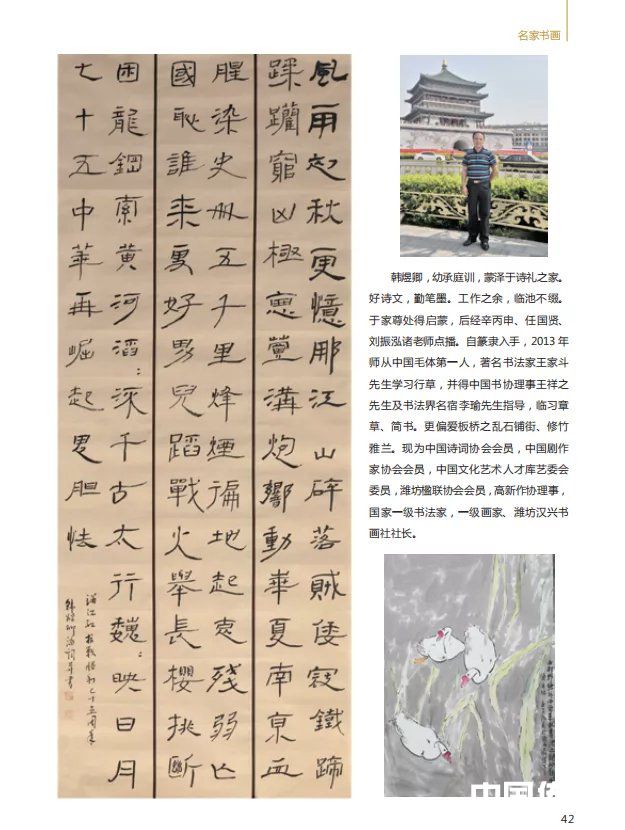 名家书画
風雨起秋更憶那江山碎落賊倭寇鐵蹄
蹂躪窮凶極惡蘆溝炮響動華夏南京血
腥染史冊五千里烽煙遍地起哀殘弱亡
國恥誰來好男兒蹈戰火舉長櫻挑斷
困龍鋼索黃河滔:深千古太行巍:映日月
七十五中華再崛起胆怯
满江红 抗戰勝利七十五周年
韓煜卿書
韩煜卿，幼承庭训，蒙泽于诗礼之家。
好诗文，勤笔墨。工作之余，临池不缀。
于家尊处得启蒙，后经辛丙申、任国贤、
刘振泓诸老师点播。自篆隶入手，2013 年
师从中国毛体第一人，著名书法家王家斗
先生学习行草，并得中国书协理事王祥之
先生及书法界名宿李瑜先生指导，临习章
草、简书。更偏爱板桥之乱石铺街、修竹
雅兰。现为中国诗词协会会员，中国剧作
家协会会员，中国文化艺术人才库艺委会
委员，潍坊楹联协会会员，高新作协理事，
国家一级书法家，一级画家、潍坊汉兴书
画社社长。
中国
42